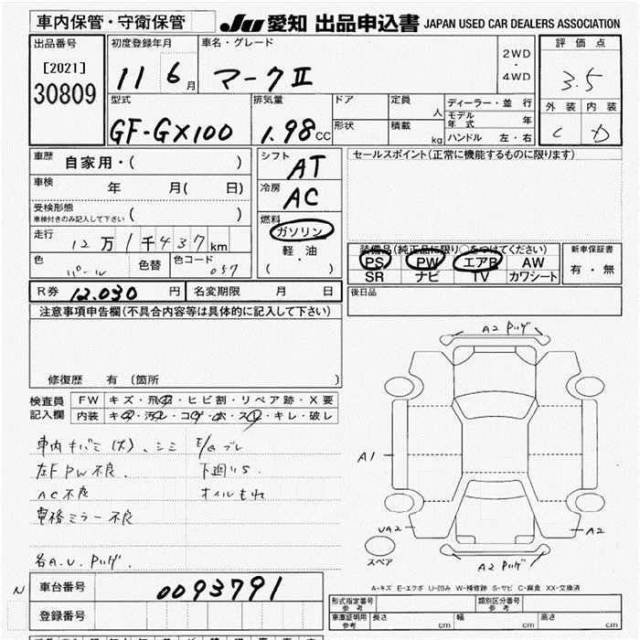 車内保管・守衛保管
JU 愛知 出品申込書 JAPAN USED CAR DEALERS ASSOCIATION
出品番号
[2021]
30809
初度登録年月
11 6月
車名・グレード
マークⅡ
2WD
・
4WD
評価点
3.5
外装 内装
C D
型式
GF-GX100
排気量
1.98CC
ドア
形状
定員 人
積載 kg
ディーラー・並行
モデル年式 年
ハンドル 左・右
車歴 自家用・( )
車検 年 月( 日)
受検形態
車検付きのみ記入して下さい ( )
走行 12万1千437km
色 パール 色替 色コード 057
シフト AT
冷房 AC
燃料
ガソリン
軽・油
( )
セールスポイント(正常に機能するものに限ります)
装備品(純正品に限り○をつけてください)
PS PW エアB AW
SR ナビ TV カワシート
新車保証書
有・無
R券 12,030円 名変期限 月 日
後日品
注意事項申告欄(不具合内容等は具体的に記入して下さい)
修復歴 有(箇所 )
検査員
記入欄
FW キズ・飛・ヒビ割・リペア跡・X要
内装 キ・汚・コ・穴・ス・キレ・破し
車内キバミ(大)、シミ
左F PW 不良
下廻りS
AC不良
オイルもれ
車検ミラー不良
各A.U.
A2
A1
UA2
A2
A2
スペア
A-キズ E-エクボ U-凹み W-補修跡 S-サビ C-腐食 XX-交換済
N
車台番号 0093791
登録番号
型式指定番号
参考
類別区分番号
参考
車庫証明用
参考
長さ cm
幅 cm
高さ cm